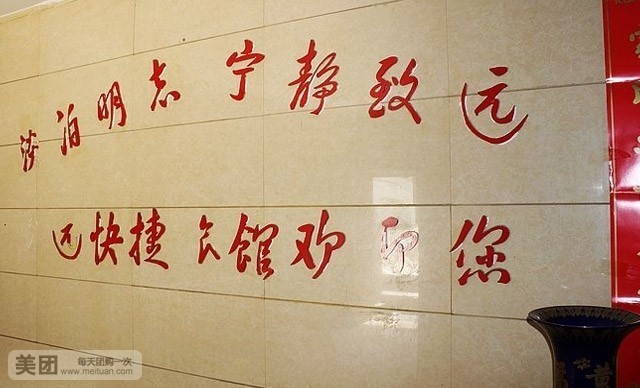 淡泊明志宁静致远
远快捷食馆欢迎您
美团 每天团购一次
www.meituan.com